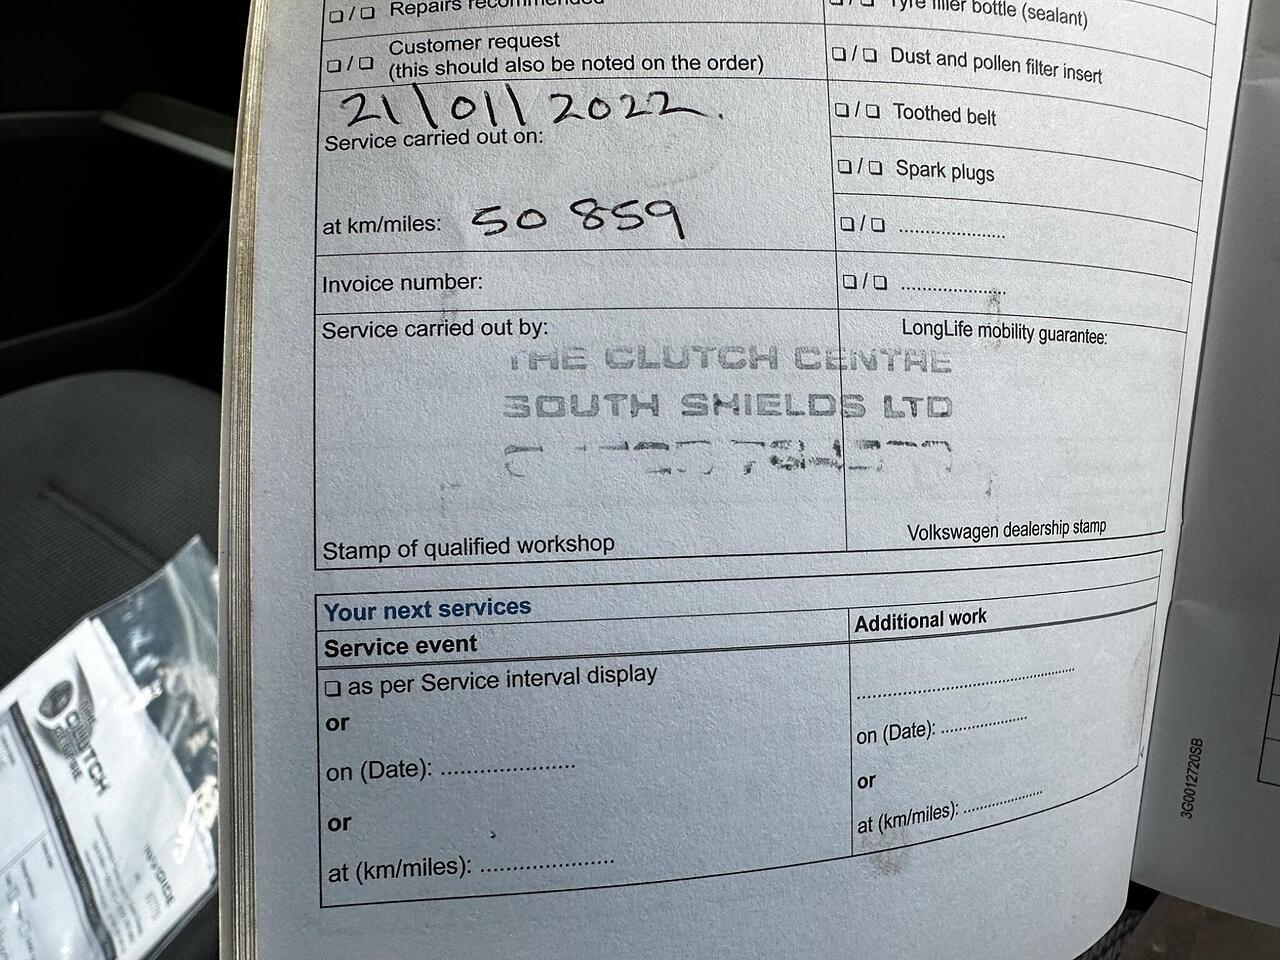 ❏ / ❏ Repairs recommended
❏ / ❏ Customer request
(this should also be noted on the order)
21/01/2022.
Service carried out on:
at km/miles: 50 859
Invoice number:
Service carried out by:
THE CLUTCH CENTRE
SOUTH SHIELDS LTD
Stamp of qualified workshop
❏ / ❏ Tyre filler bottle (sealant)
❏ / ❏ Dust and pollen filter insert
❏ / ❏ Toothed belt
❏ / ❏ Spark plugs
❏ / ❏ ....................
❏ / ❏ ....................
LongLife mobility guarantee:
Volkswagen dealership stamp
Your next services
Service event
❏ as per Service interval display
or
on (Date): ......................
or
at (km/miles): ......................
Additional work
........................................
on (Date): ................
or
at (km/miles): ................
3G0012720SB
THE
CLUTCH
CENTRE
INVOICE